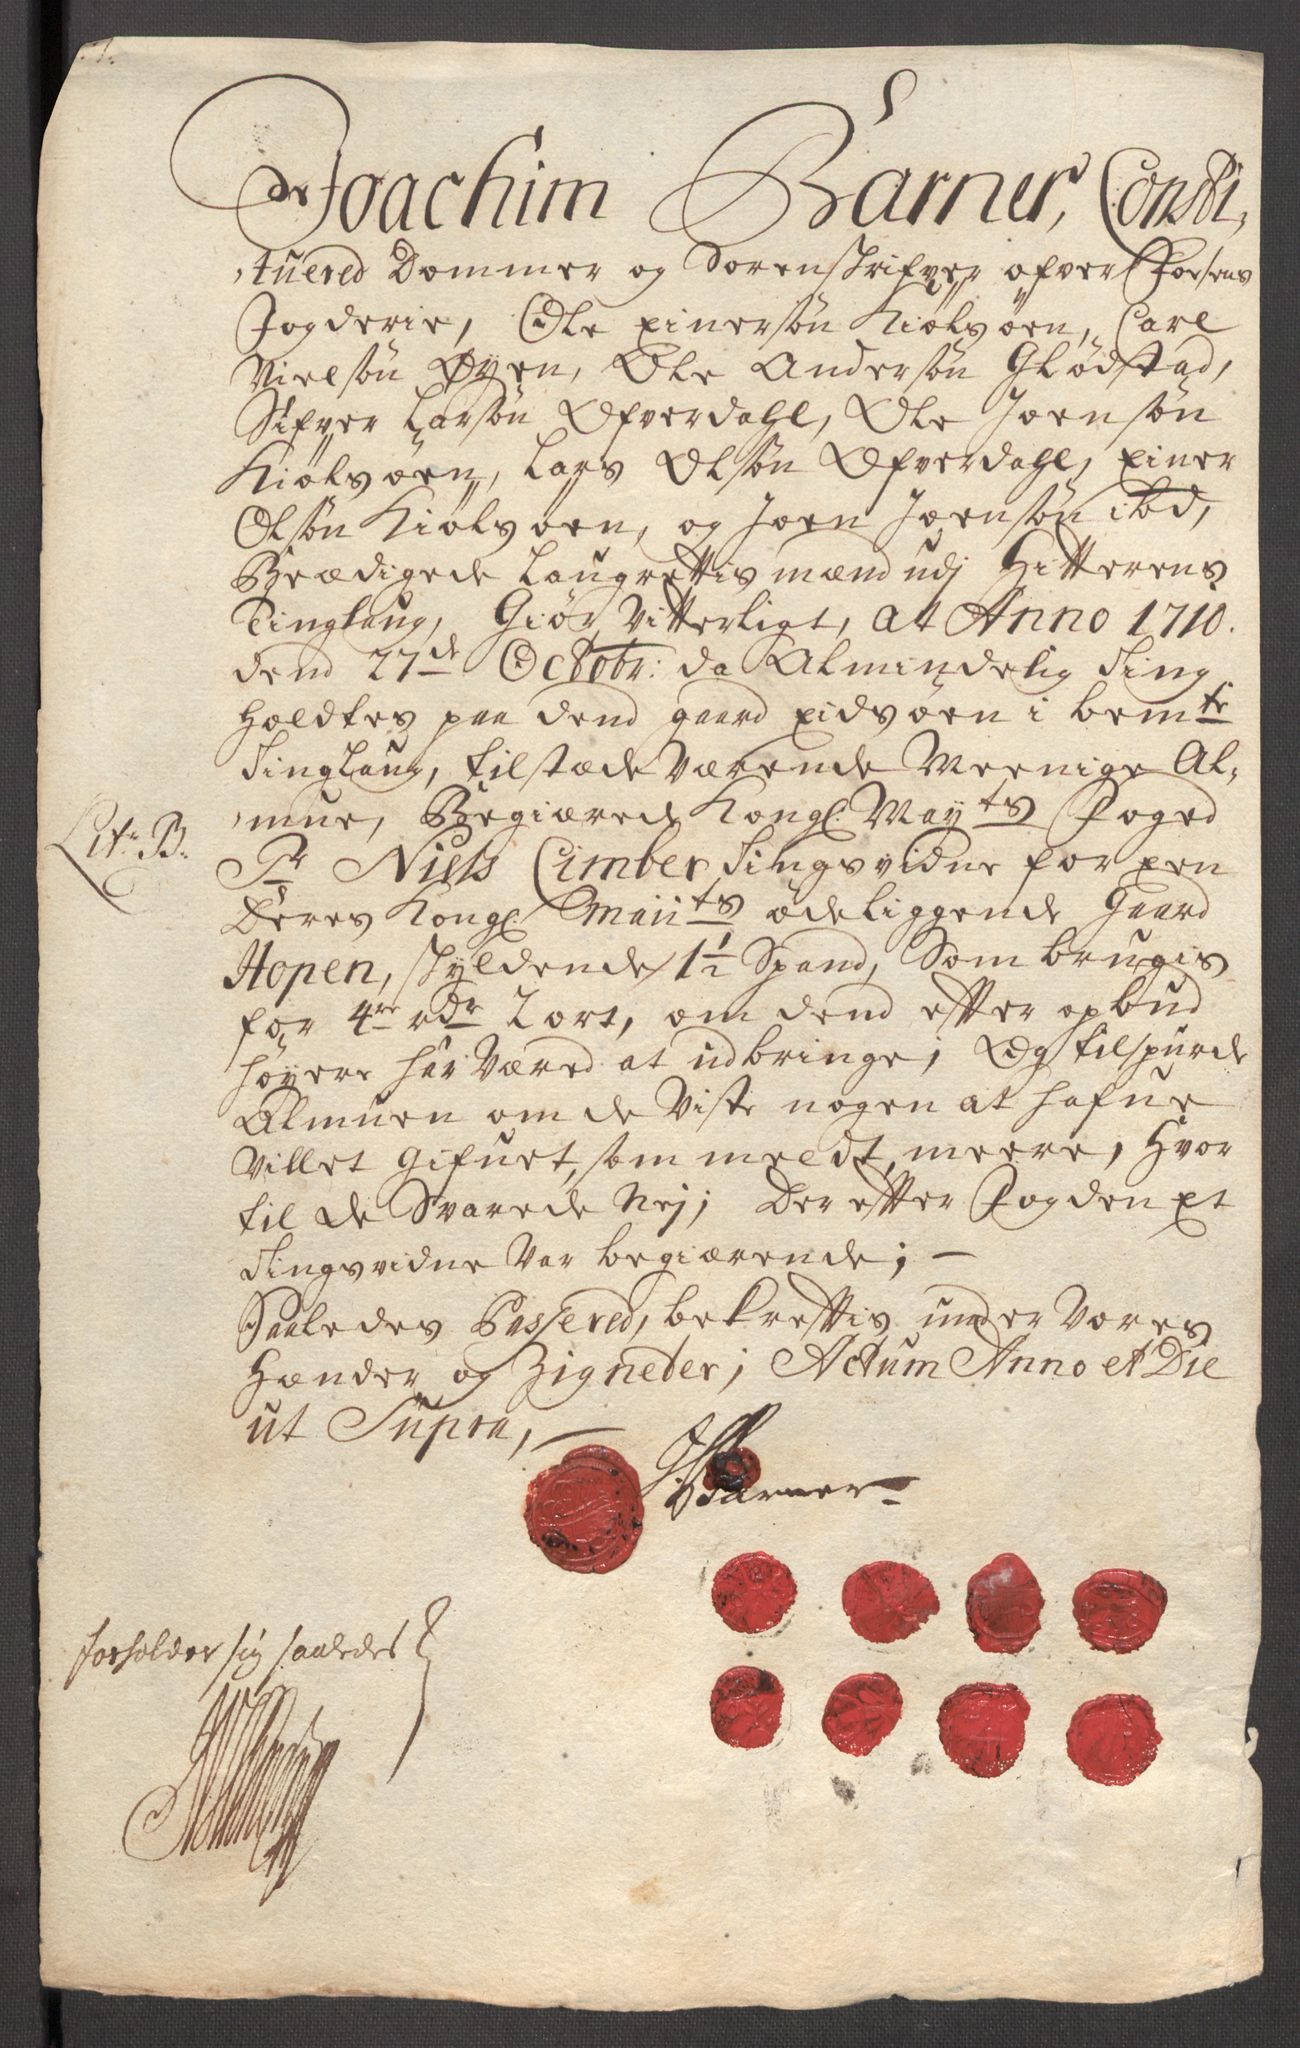 Joachim Barner, Consti¸
¸tuered Dommer og Sorenskrifver ofver Fosens
Fogderie, Ole Einersøn Kiølsøen, Carl
Nielsøn Øyen, Ole Andersøn Glødstad,
Sifver Larsøn Ofverdahl, Ole Joensøn
Kiølsøen, Lars Olsøn Ofverdahl, Einer
Olsøn Kiølsøen, og Joen Joensøn ibd,
Beædigede Laugrettis mænd udj Hitterens
Tinglaug, Giør Vitterligt, at Anno 1710.
dend 27de Octobr: da Almindelig Ting
holdtes paa dend gaard Eidsøen i bemte
Tinglaug, tilstæde Værende Meenige Al¸
¸mue, Begiærede Kongl: Mayts Foged
Sr Niels Cimber Tingsvidne for een
Deres Kongl: Maiits ødeliggende Gaard
Hopen, skyldende 1½ Spand, Som brugis
for 4re rdr 2 ort, om dend efter opbud
høyere har Væred at udbringe; Og tilspurde
Almuen om de Viste nogen at hafue
Villet gifuet, som meldt, meere, Hvor
til de Svarede Nej; Der efter Fogden et
Tingsvidne Var begiærende; —
Saaledes Passered, bekreftis under Vores
Hænder og Zigneder; Actum Anno et Die
ut Supra, —
Litr B.
JBarner
forholder sig saaledes